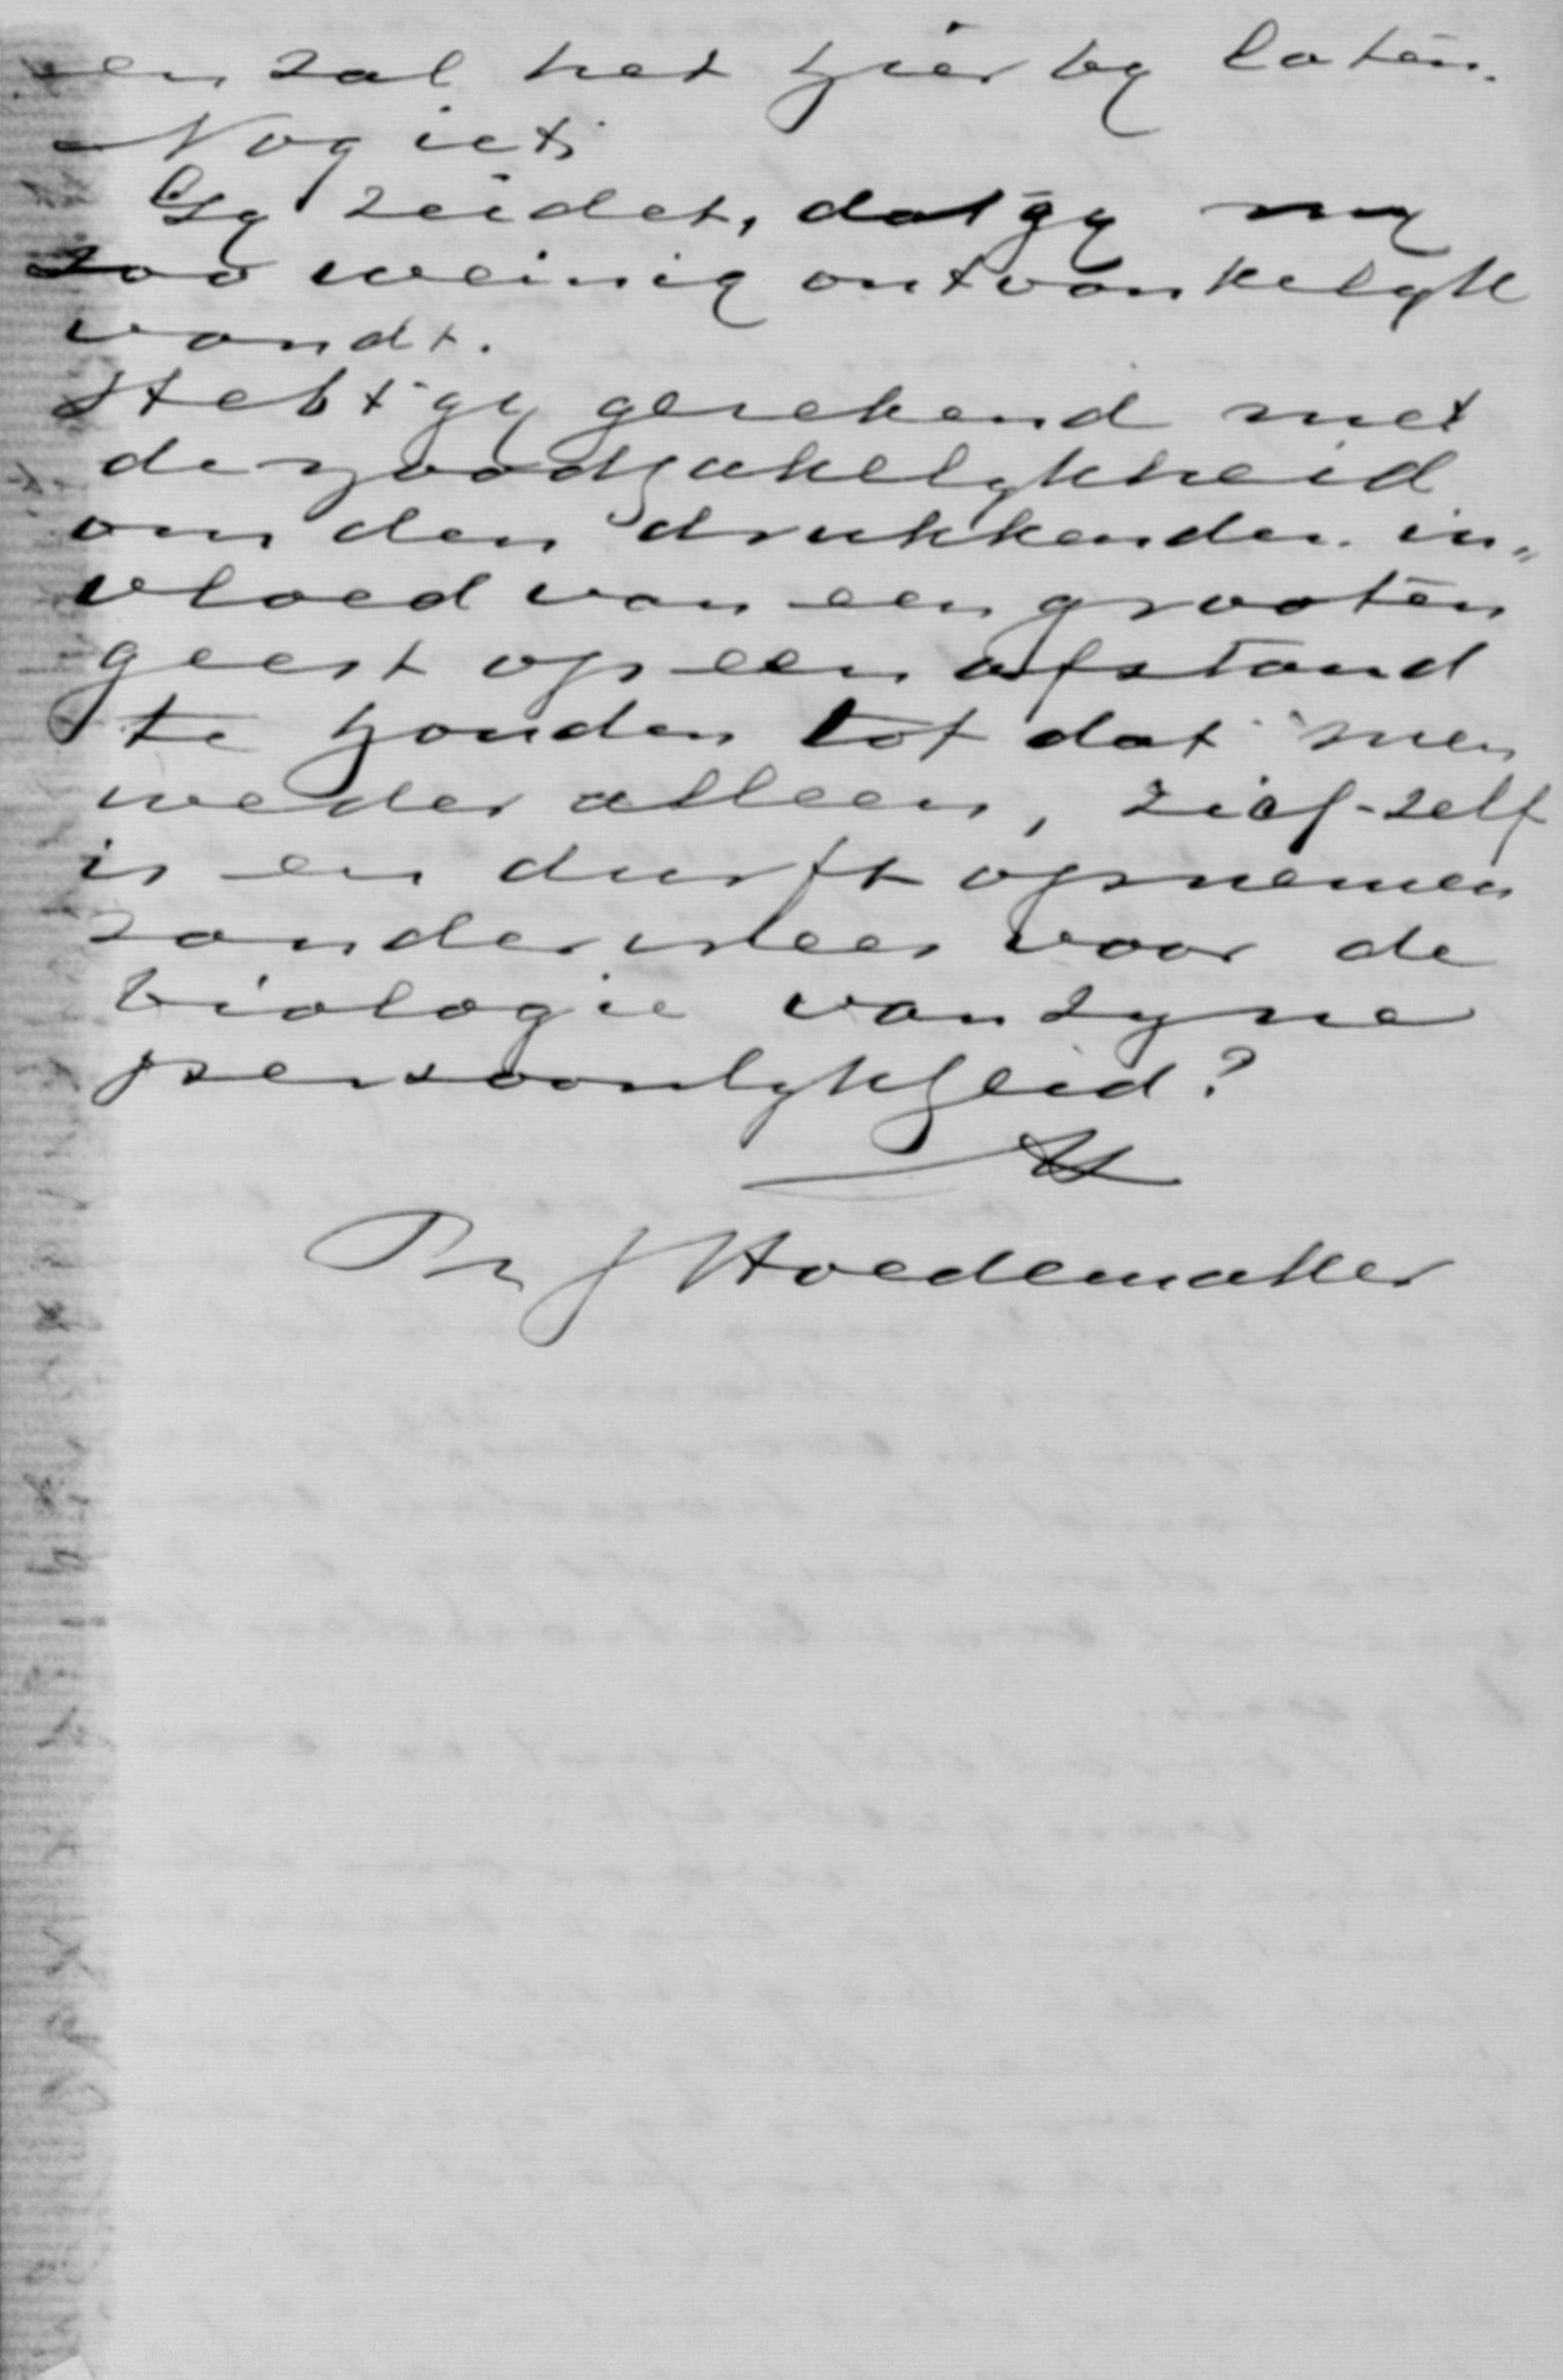 en zal het hierby laten.
Nog iets
Gy zeidet, dat gy my
zoo weinig ontvankelyk
vondt.
Hebt gy gerekend met
de noodzakelykheid
om den drukkenden in„
vloed van een grooten
geest op een afstand
te houden tot dat men
weder alleen, zich-zelf
is en durft opnemen
zonder vrees voor de
biologie van zyne
persoonlykheid?
Ph J Hoedemaker